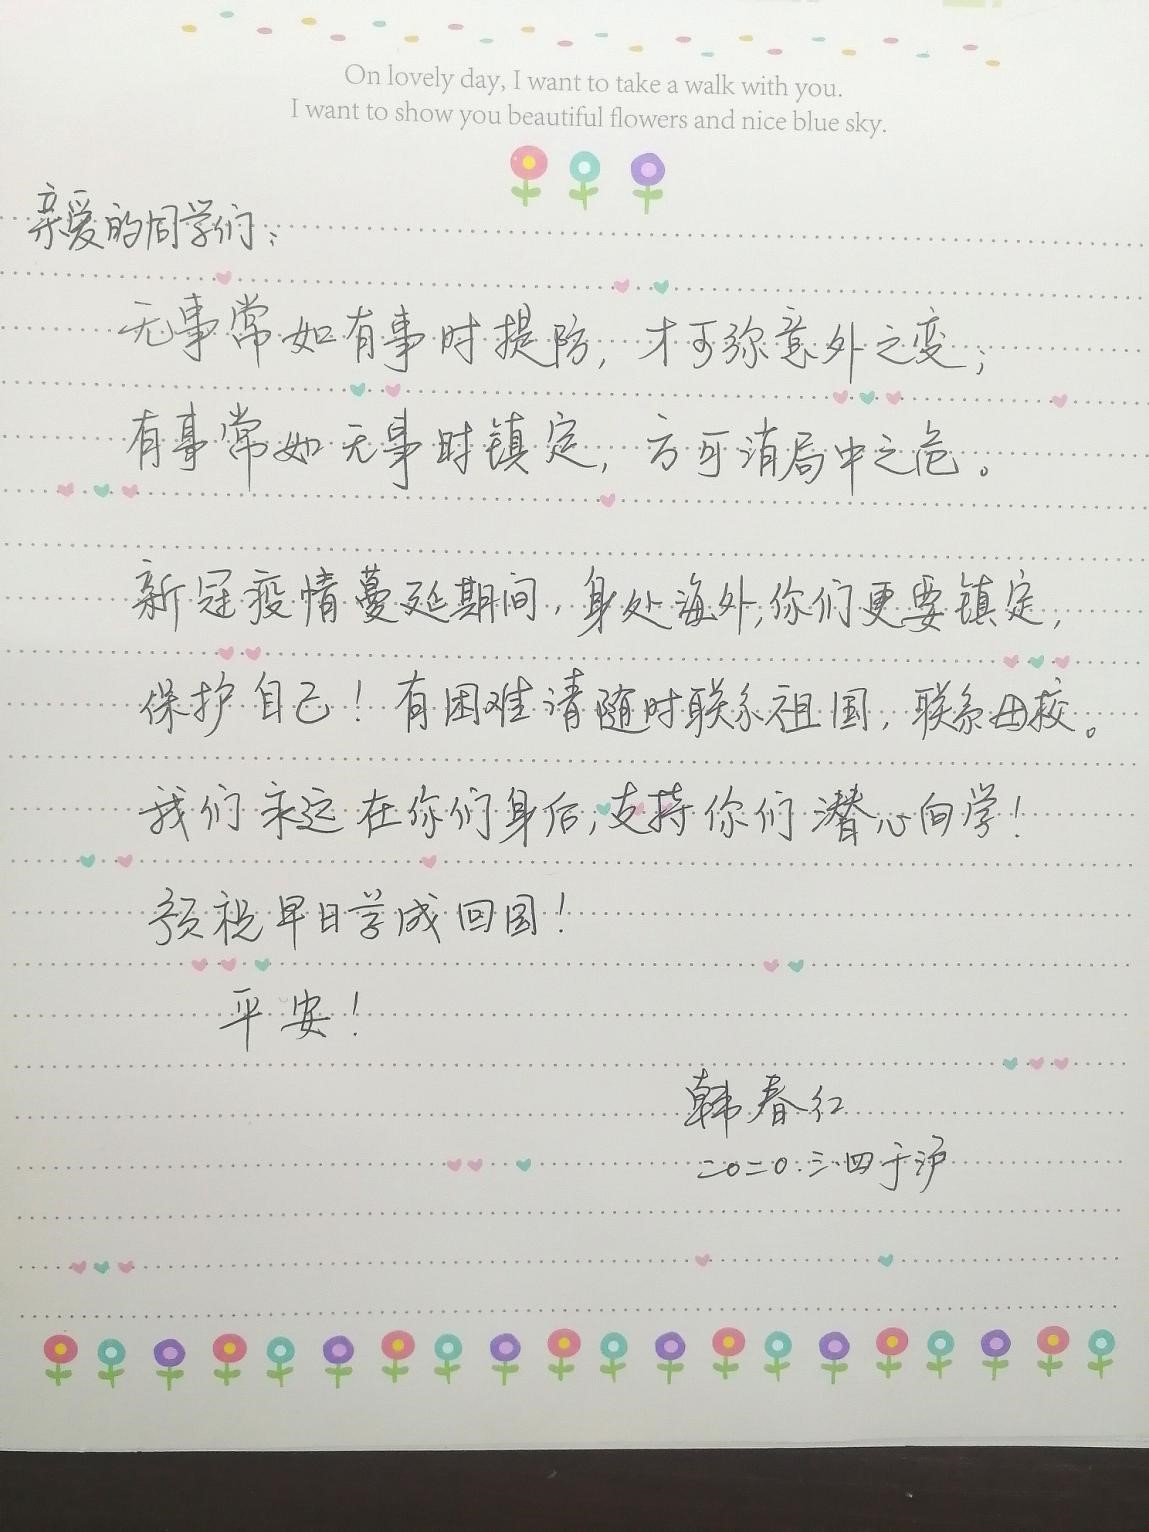 On lovely day, I want to take a walk with you.
I want to show you beautiful flowers and nice blue sky.
亲爱的同学们：
无事常如有事时提防，才可弥意外之变；
有事常如无事时镇定，方可消局中之危。
新冠疫情蔓延期间，身处海外，你们更要镇定，
保护自己！有困难请随时联系祖国，联系母校。
我们永远在你们身后，支持你们潜心向学！
预祝早日学成回国！
平安！
韩春红
二〇二〇.三.四于沪